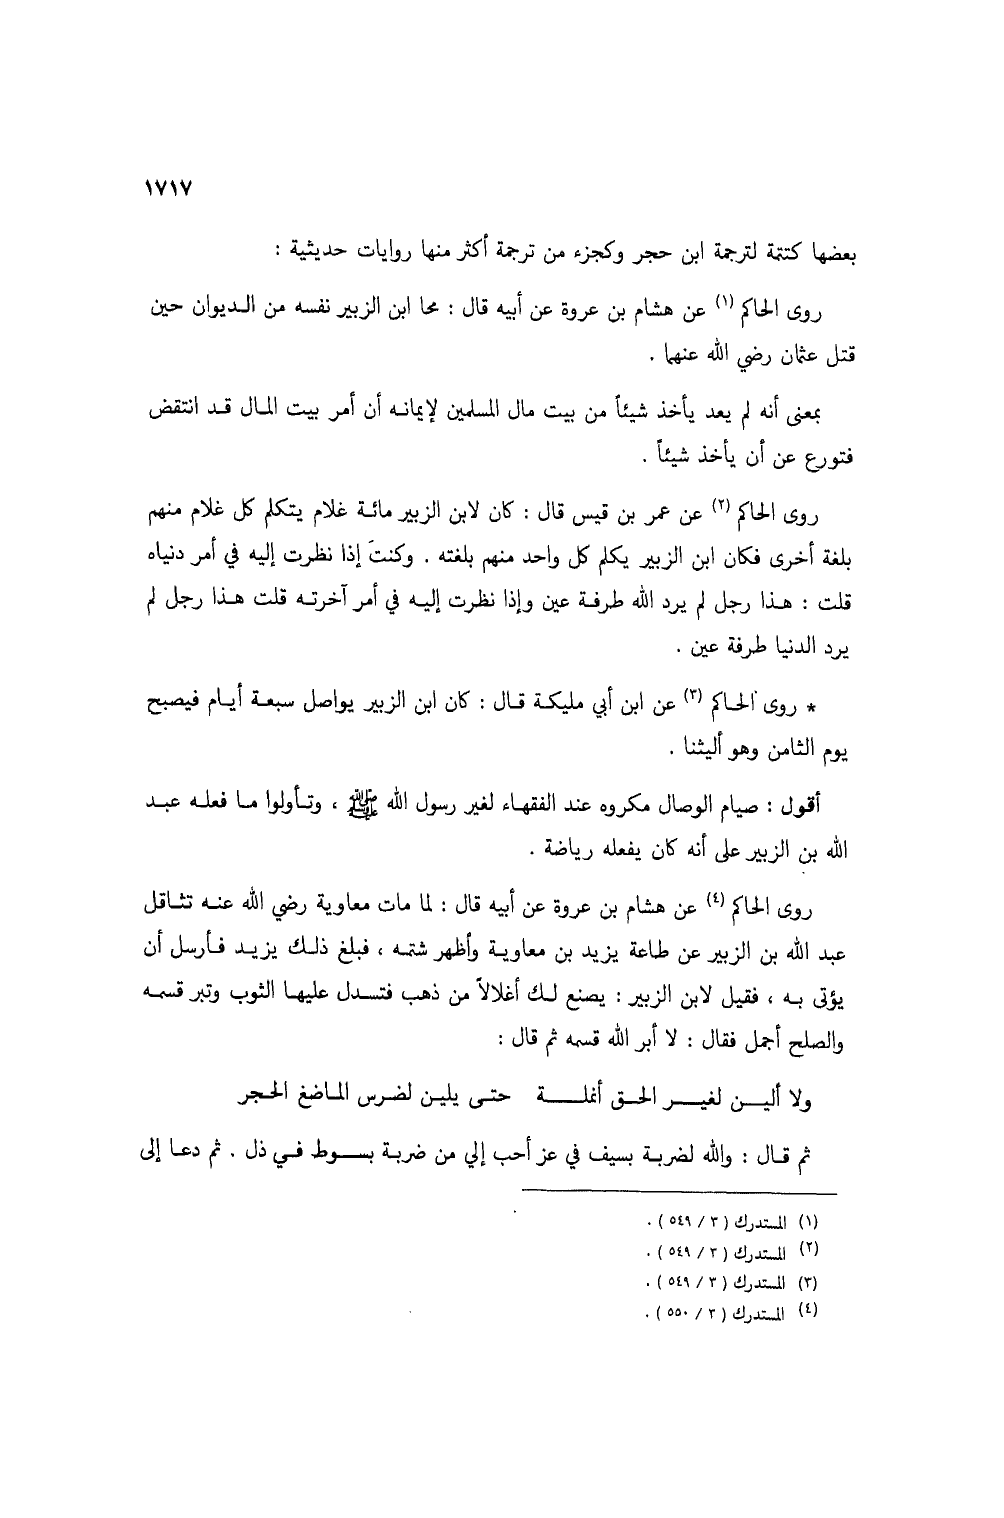 ١٧١٧
بعضها كتتمة لترجمة ابن حجر وكجزء من ترجمة أكثر منها روايات حديثية :
روى الحاكم (١) عن هشام بن عروة عن أبيه قال : محا ابن الزبير نفسه من الديوان حين
قتل عثمان رضي الله عنهما .
بمعنى أنه لم يعد يأخذ شيئاً من بيت مال المسلمين لإيمانه أن أمر بيت المال قد انتقض
فتورع عن أن يأخذ شيئاً .
روى الحاكم (٢) عن عمر بن قيس قال : كان لابن الزبير مائة غلام يتكلم كل غلام منهم
بلغة أخرى فكان ابن الزبير يكلم كل واحد منهم بلغته . وكنتَ إذا نظرت إليه في أمر دنياه
قلت : هذا رجل لم يرد الله طرفة عين وإذا نظرت إليه في أمر آخرته قلت هذا رجل لم
يرد الدنيا طرفة عين .
* روى الحاكم (٣) عن ابن أبي مليكة قال : كان ابن الزبير يواصل سبعة أيام فيصبح
يوم الثامن وهو أليثنا .
أقول : صيام الوصال مكروه عند الفقهاء لغير رسول الله ﷺ ، وتأولوا ما فعله عبد
الله بن الزبير على أنه كان يفعله رياضة .
روى الحاكم (٤) عن هشام بن عروة عن أبيه قال : لما مات معاوية رضي الله عنه تثاقل
عبد الله بن الزبير عن طاعة يزيد بن معاوية وأظهر شتمه ، فبلغ ذلك يزيد فأرسل أن
يؤتى به ، فقيل لابن الزبير : يصنع لك أغلالاً من ذهب فتسدل عليها الثوب وتبر قسمه
والصلح أجمل فقال : لا أبر الله قسمه ثم قال :
ولا أليـــن لغيـــر الحـق أنملـــــة حتـى يلين لضرس الماضغ الحجر
ثم قال : والله لضربة بسيف في عز أحب إلي من ضربة بسوط في ذل . ثم دعا إلى
(١) المستدرك ( ٣ / ٥٤٩ ) .
(٢) المستدرك ( ٣ / ٥٤٩ ) .
(٣) المستدرك ( ٣ / ٥٤٩ ) .
(٤) المستدرك ( ٣ / ٥٥٠ ) .